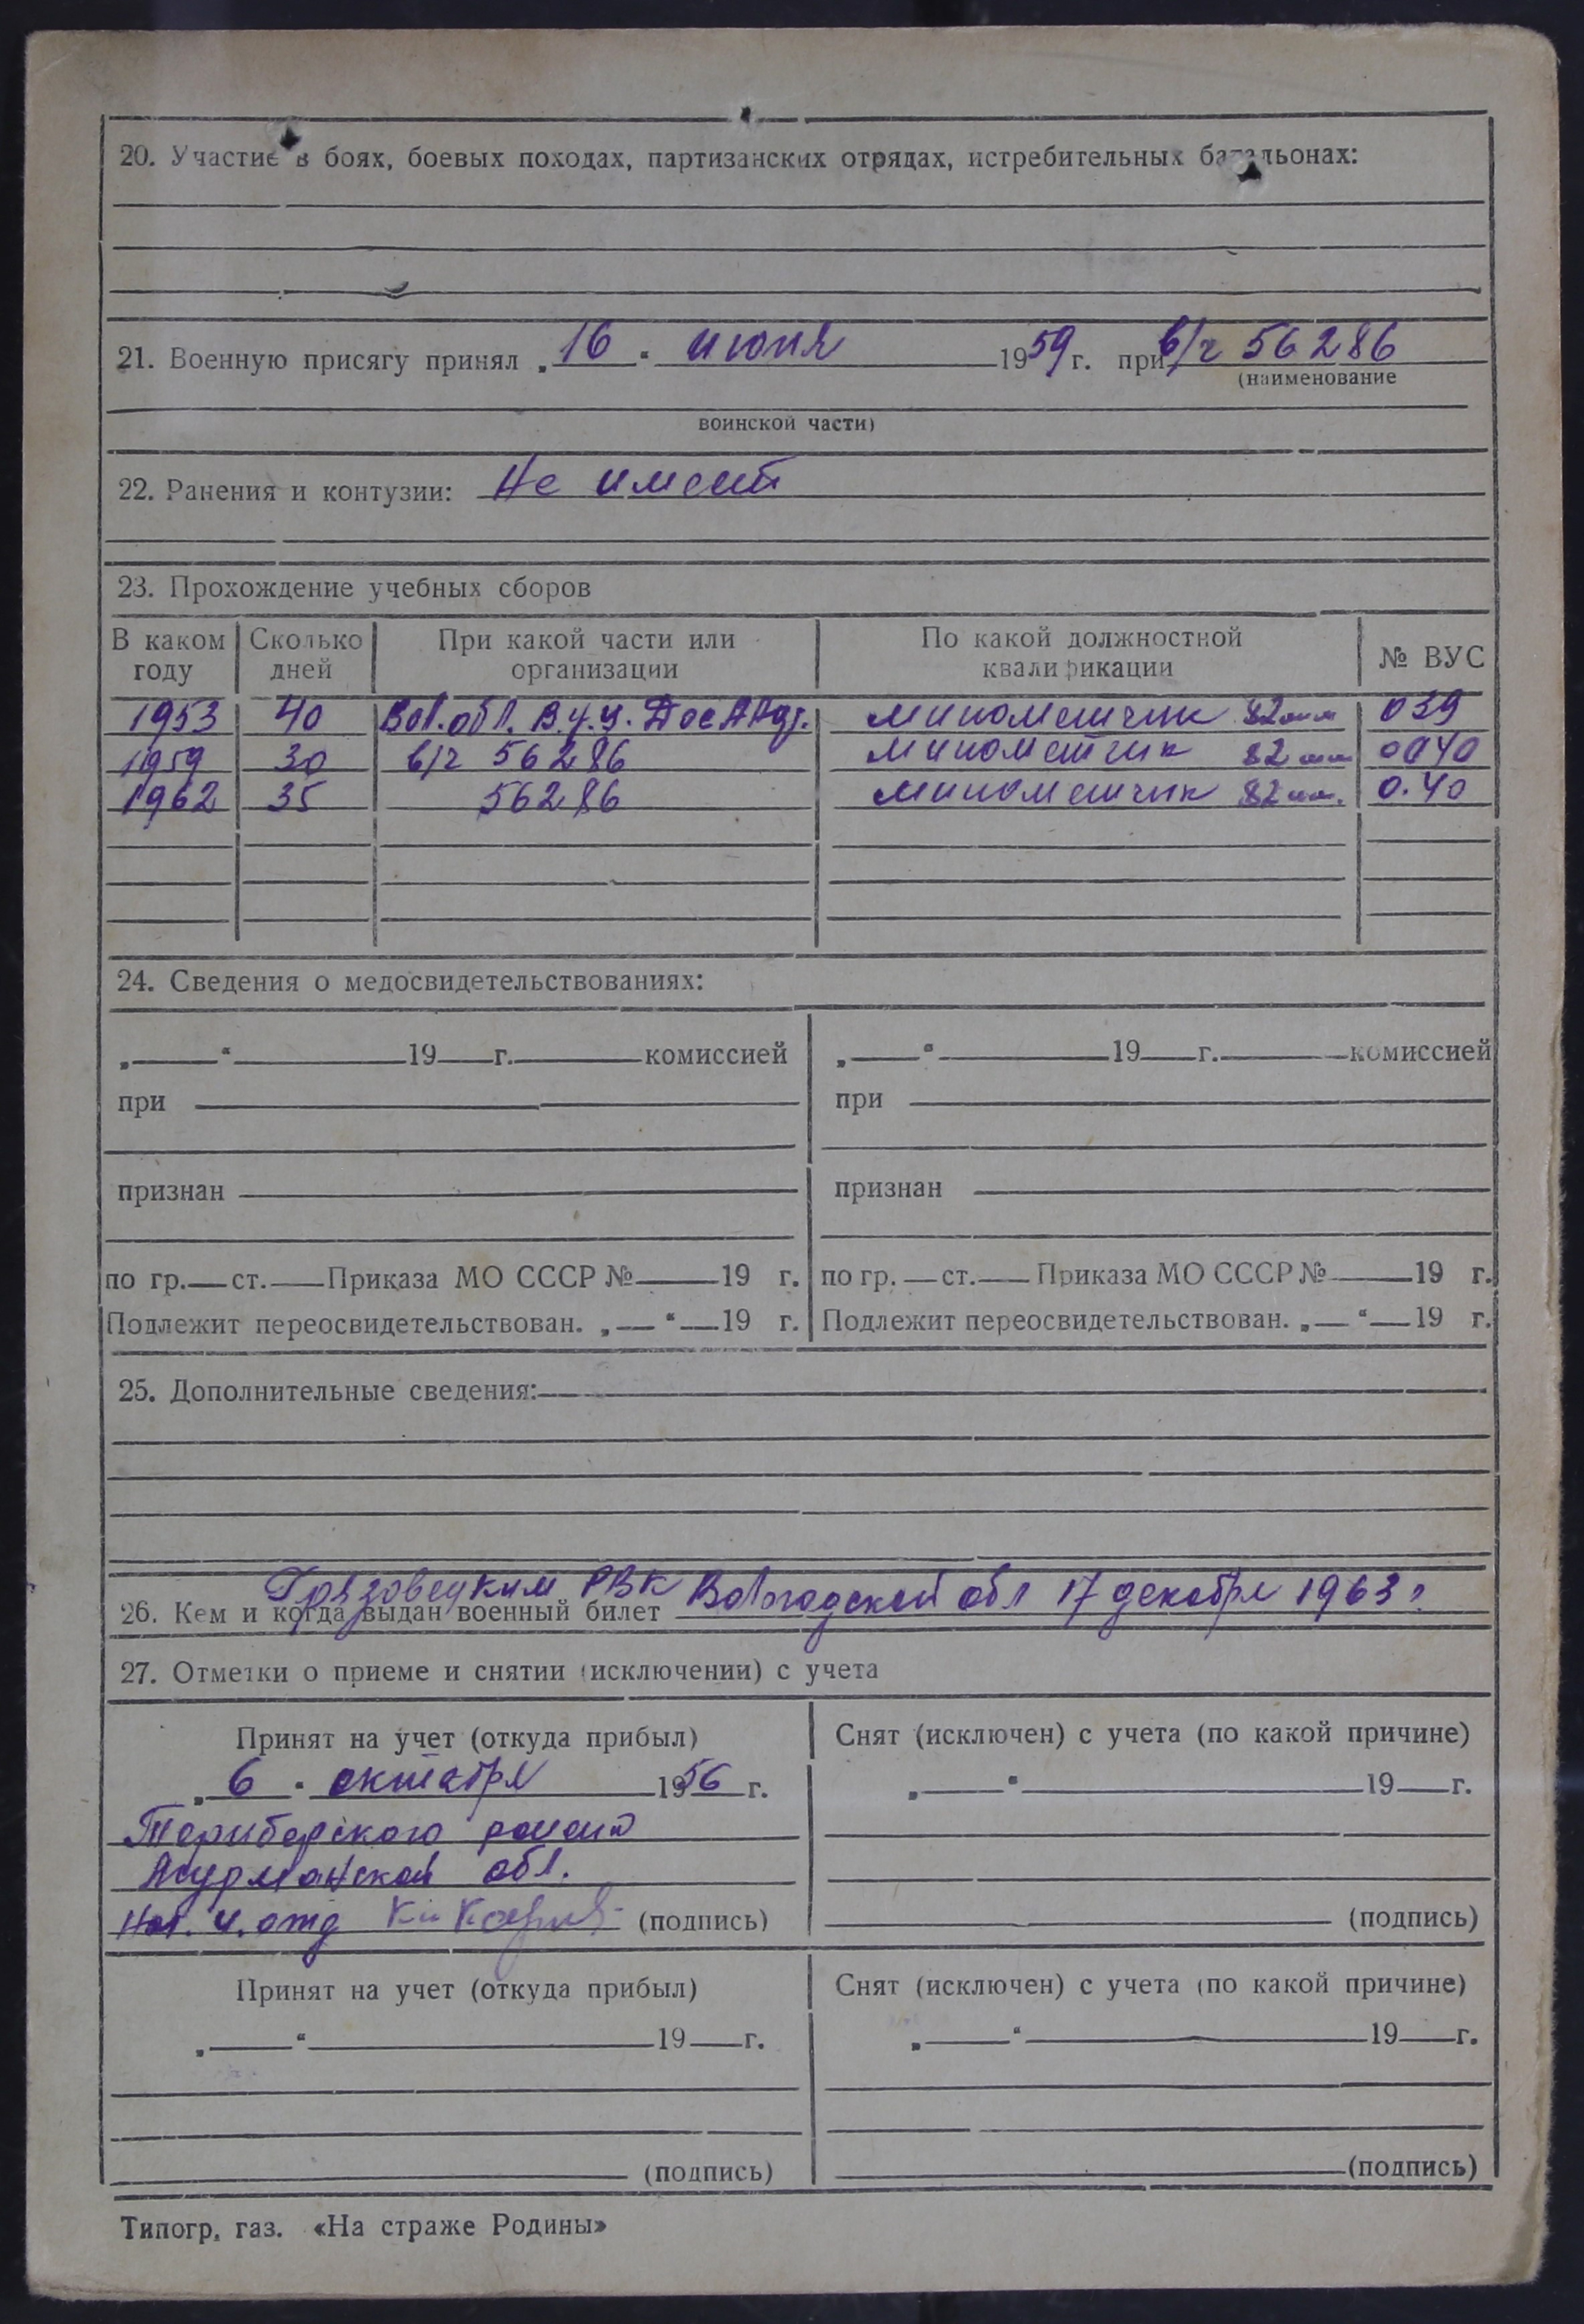 20. Участие в боях, боевых походах, партизанских отрядах, истребительных батальонах:
21. Военную присягу принял „16“ июня 1959 г. при в/ч 56286
(наименование
воинской части)
22. Ранения и контузии: Не имеет
23. Прохождение учебных сборов
В каком году Сколько дней При какой части или организации По какой должностной квалификации № ВУС
1953 40 Вол.обл. В.у.ч. минометчик 82мм 039
1959 30 в/ч 56286 минометчик 82 мм 0040
1962 35 56286 минометчик 82мм. 0.40
24. Сведения о медосвидетельствованиях:
„ “ 19 г. комиссией „ “ 19 г. комиссией
при при
признан признан
по гр. ст. Приказа МО СССР № 19 г. по гр. ст. Приказа МО СССР № 19 г.
Подлежит переосвидетельствован. „ “ 19 г. Подлежит переосвидетельствован. „ “ 19 г.
25. Дополнительные сведения:
26. Кем и когда выдан военный билет Грязовецким РВК Вологодской обл 17 декабря 1963 г.
27. Отметки о приеме и снятии (исключении) с учета
Принят на учет (откуда прибыл) Снят (исключен) с учета (по какой причине)
„6“ октября 1956 г. „ “ 19 г.
Териберского района
Мурманской обл.
Нач. ч. отд (подпись) (подпись)
Принят на учет (откуда прибыл) Снят (исключен) с учета (по какой причине)
„ “ 19 г. „ “ 19 г.
(подпись) (подпись)
Типогр. газ. «На страже Родины»